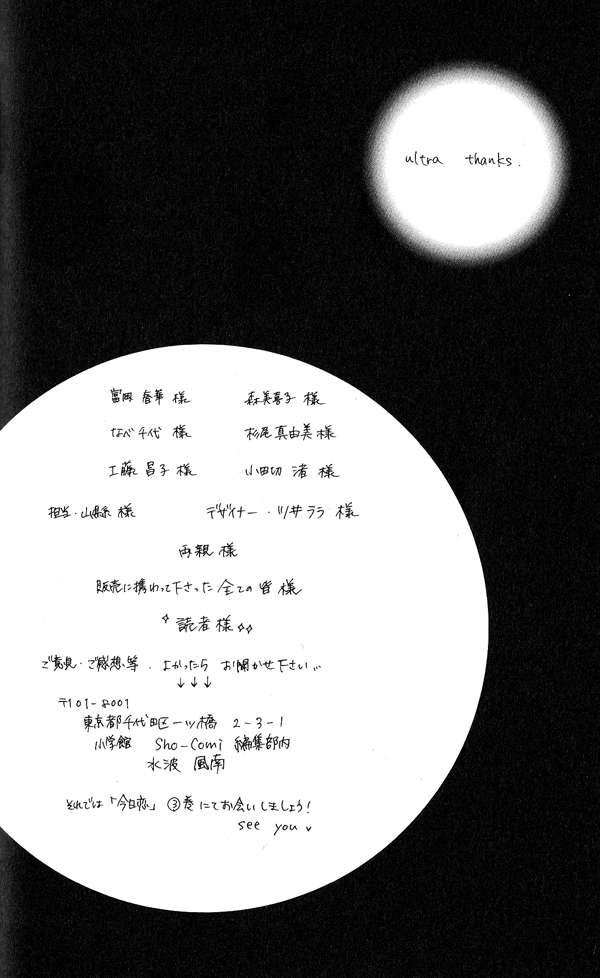 ultra thanks.
富岡 春華 様 森美喜子 様
なべ千代 様 杉尾真由美 様
工藤 昌子 様 小田切 渚 様
担当・山縣 様 デザイナー・ツササラ 様
両親 様
販売に携わって下さった 全ての 皆 様
読者様
ご意見・ご感想等、よかったら お聞かせ下さい…
↓↓↓
〒101-8001
東京都千代田区一ツ橋 2-3-1
小学館 Sho-Comi 編集部内
水波 風南
それでは「今日恋」③巻 にてお会いしましょう!
see you ♥